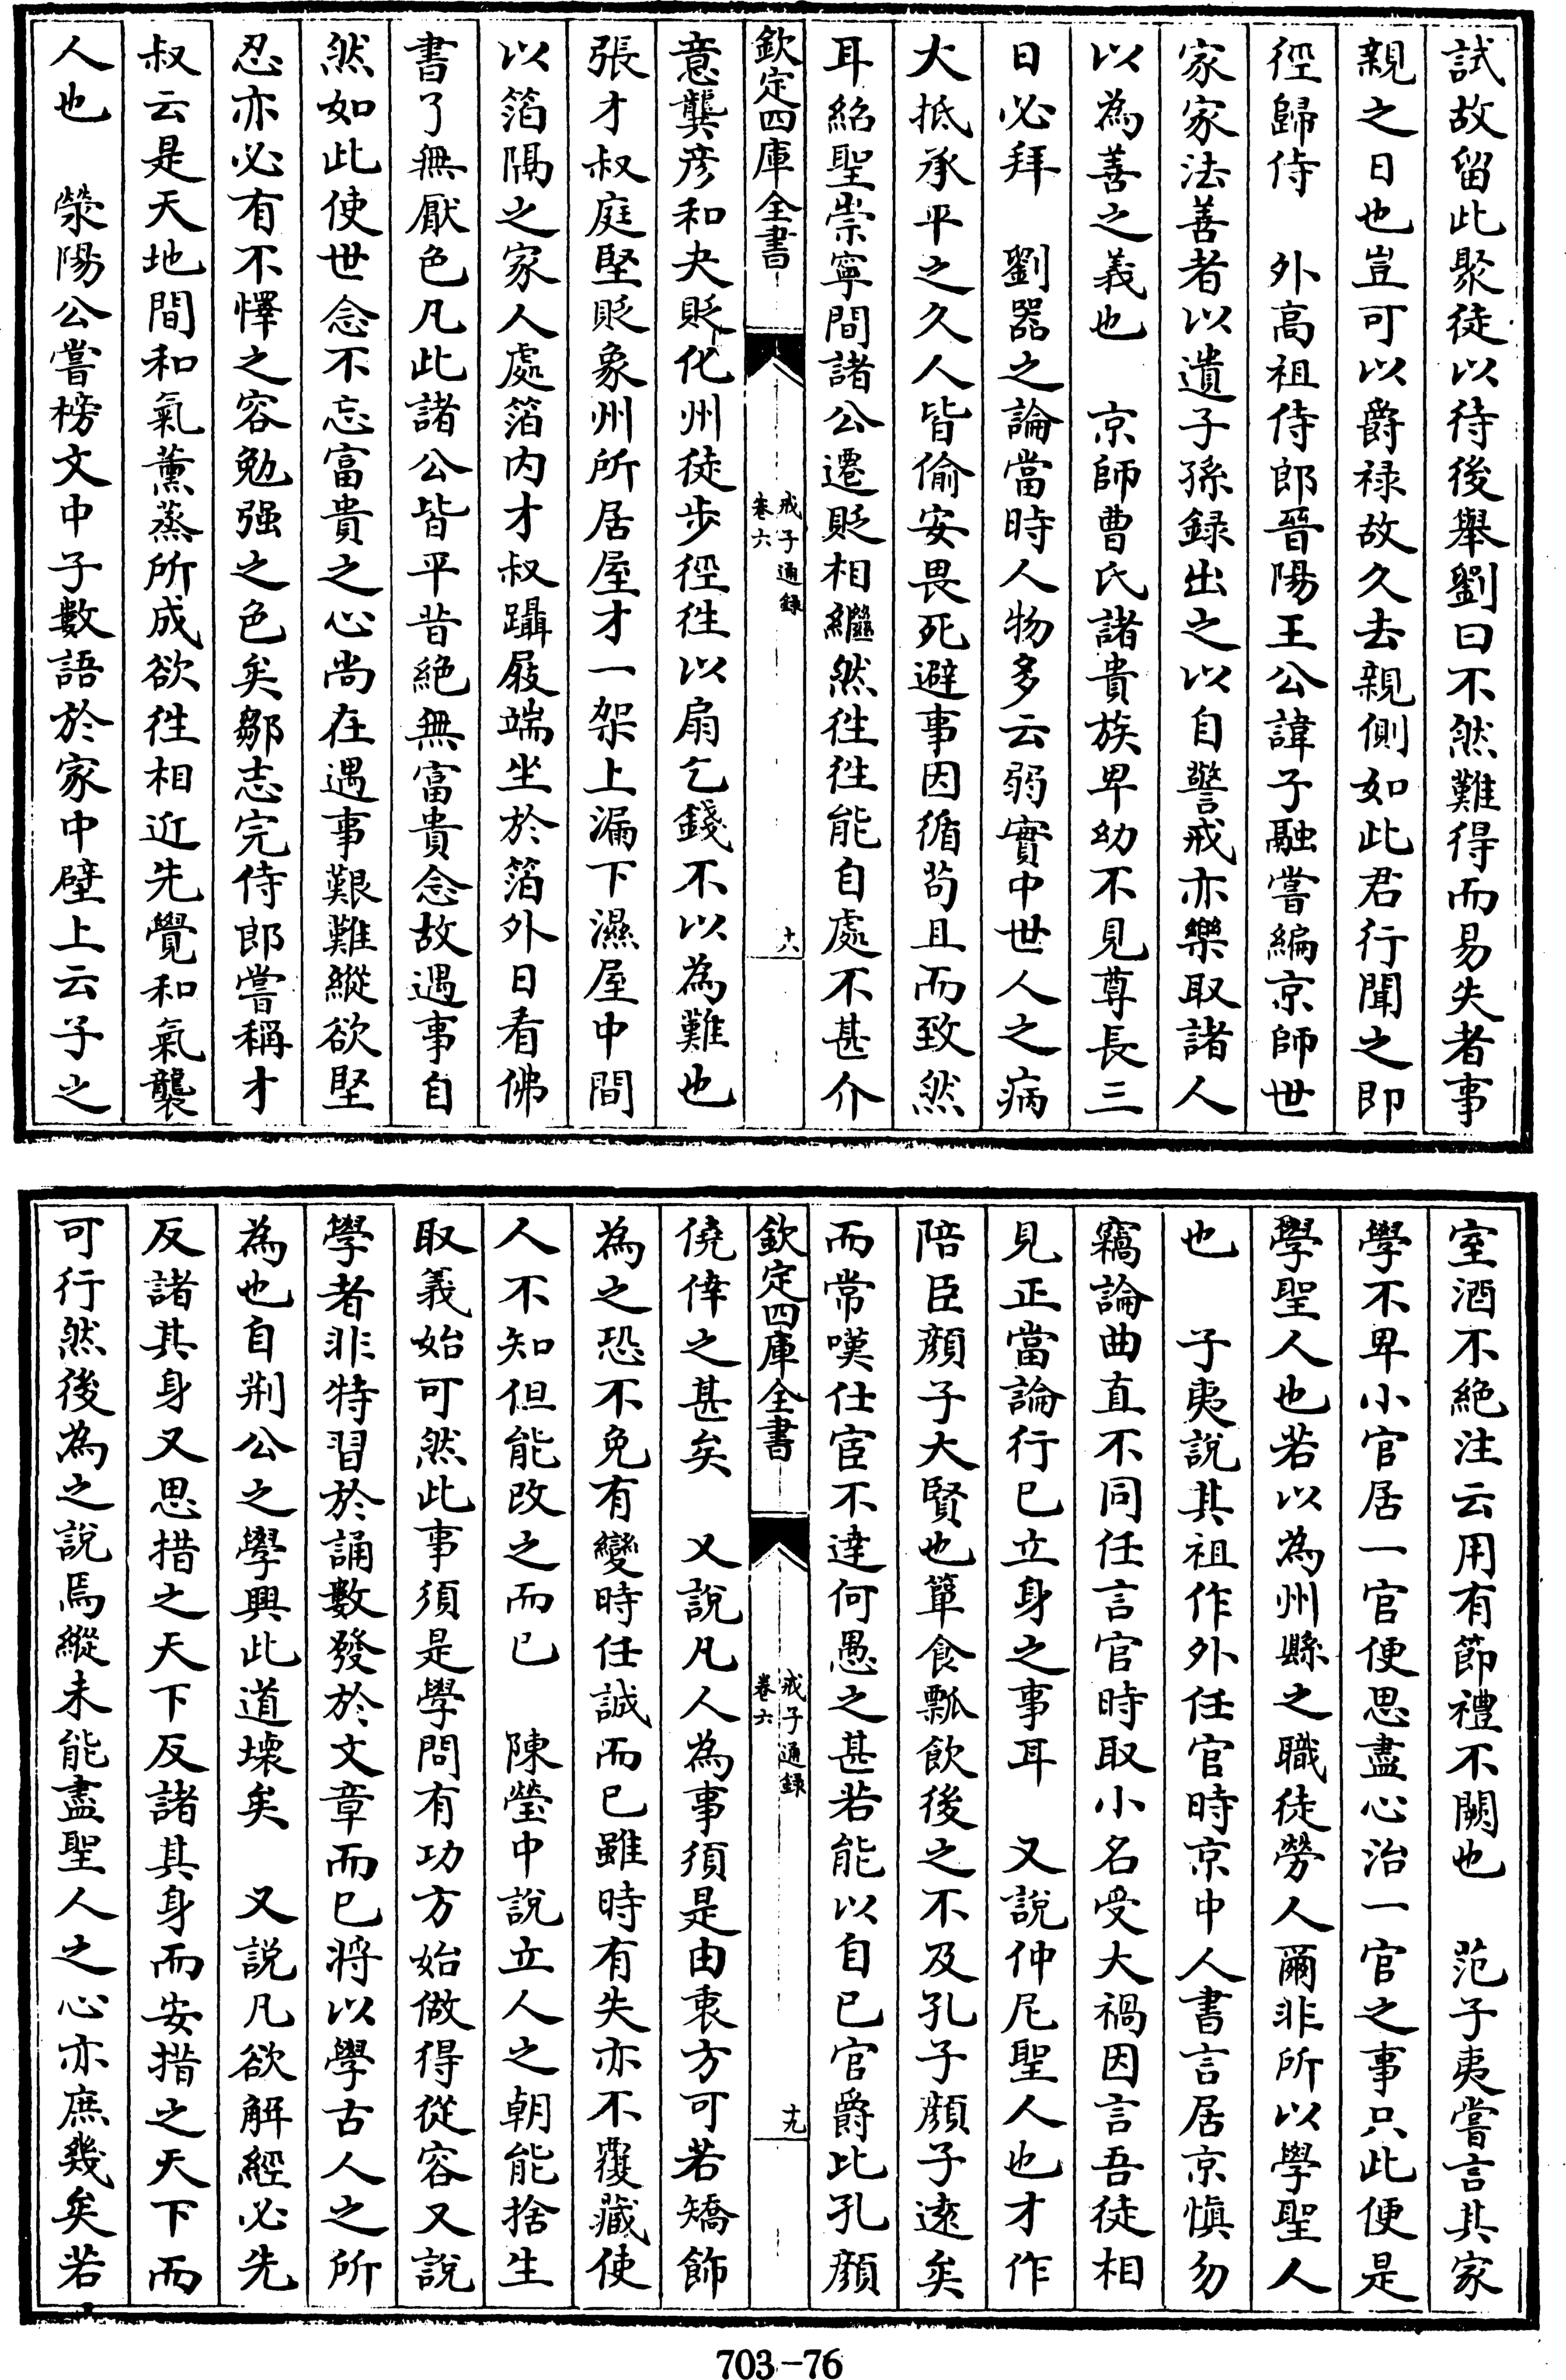 試故留此聚徒以待後舉劉曰不然難得而易失者事
親之日也豈可以爵禄故久去親側如此君行聞之即
徑歸侍　外高祖侍郎晉陽王公諱子融嘗編京師世
家家法善者以遺子孫録出之以自警戒亦樂取諸人
以為善之義也　京師曹氏諸貴族卑幼不見尊長三
日必拜　劉器之論當時人物多云弱實中世人之病
大抵承平之久人皆偷安畏死避事因循苟且而致然
耳紹聖崇寧間諸公遷貶相繼然徃徃能自處不甚介
欽定四庫全書
戒子通録
卷六
十八
意龔彦和夬貶化州徒步徑徃以扇乞錢不以為難也
張才叔庭堅貶象州所居屋才一架上漏下濕屋中間
以箔隔之家人處箔内才叔躡屐端坐於箔外日看佛
書了無厭色凡此諸公皆平昔絶無富貴念故遇事自
然如此使世念不忘富貴之心尚在遇事艱難縱欲堅
忍亦必有不懌之容勉强之色矣鄒志完侍郎嘗稱才
叔云是天地間和氣薰蒸所成欲徃相近先覺和氣襲
人也　滎陽公嘗榜文中子數語於家中壁上云子之
室酒不絶注云用有節禮不闕也　范子夷嘗言其家
學不卑小官居一官便思盡心治一官之事只此便是
學聖人也若以為州縣之職徒勞人爾非所以學聖人
也　子夷說其祖作外任官時京中人書言居京慎勿
竊論曲直不同任言官時取小名受大禍因言吾徒相
見正當論行已立身之事耳　又説仲尼聖人也才作
陪臣顔子大賢也簞食瓢飲後之不及孔子顔子逺矣
而常嘆仕宦不達何愚之甚若能以自已官爵比孔顔
欽定四庫全書
戒子通録
卷六
十九
僥倖之甚矣　又說凡人為事須是由衷方可若矯飾
為之恐不免有變時任誠而已雖時有失亦不覆藏使
人不知但能改之而已　陳瑩中說立人之朝能捨生
取義始可然此事須是學問有功方始做得從容又説
學者非特習於誦數發於文章而已将以學古人之所
為也自荆公之學興此道壊矣　又説凡欲解經必先
反諸其身又思措之天下反諸其身而安措之天下而
可行然後為之説焉縱未能盡聖人之心亦庶幾矣若
703-76